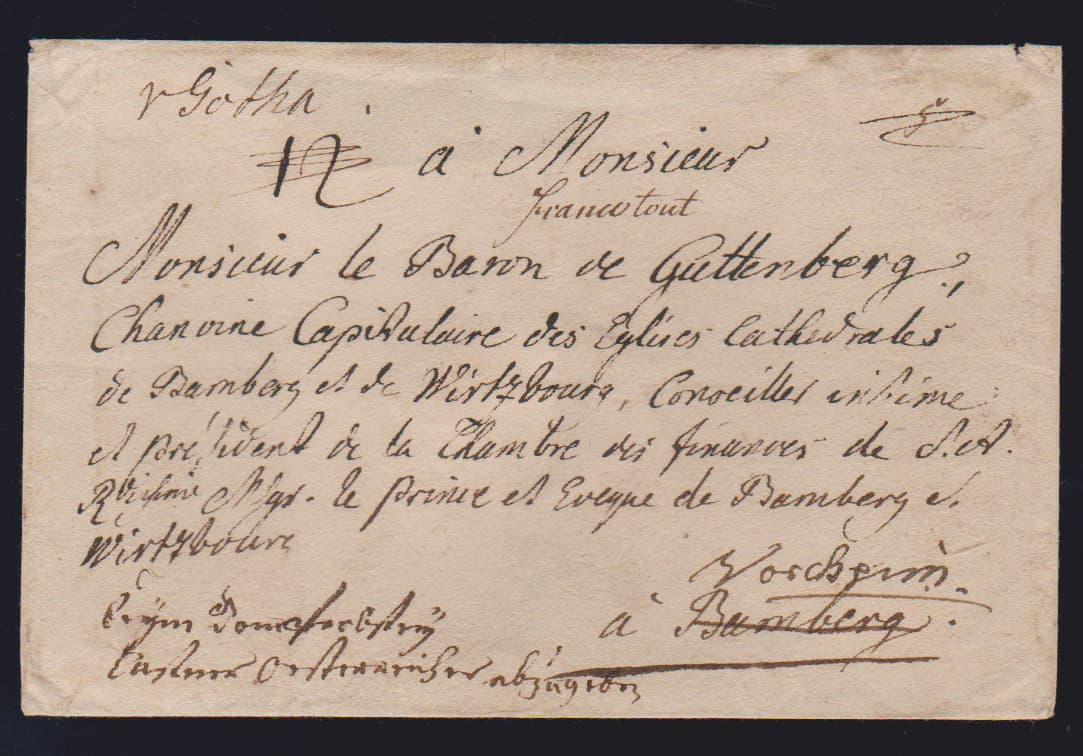 r Gotha
12 à Monsieur
franco tout
Monsieur le Baron de Guttenberg,
Chanoine Capitulaire des Eglises Cathedrales
de Bamberg et de Wirtzbourg, Conseiller intime
et président de la Chambre des finances de S. A.
Mgr. le prince et Eveque de Bamberg et
Wirtzbourg
Vorcheim
à Bamberg.
beym
Castner Oesterreicher abzugeben